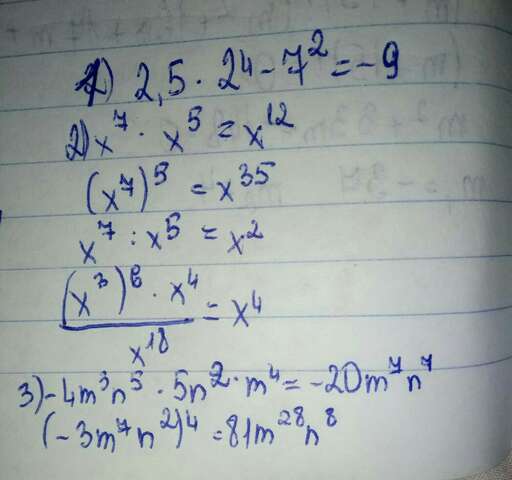 1) 2,5 · 2⁴ - 7² = -9
2) x⁷ · x⁵ = x¹²
(x⁷)⁵ = x³⁵
x⁷ : x⁵ = x²
(x³)⁶ · x⁴ / x¹⁸ = x⁴
3) -4m³n⁵ · 5n² · m⁴ = -20m⁷n⁷
(-3m⁷n²)⁴ = 81m²⁸n⁸